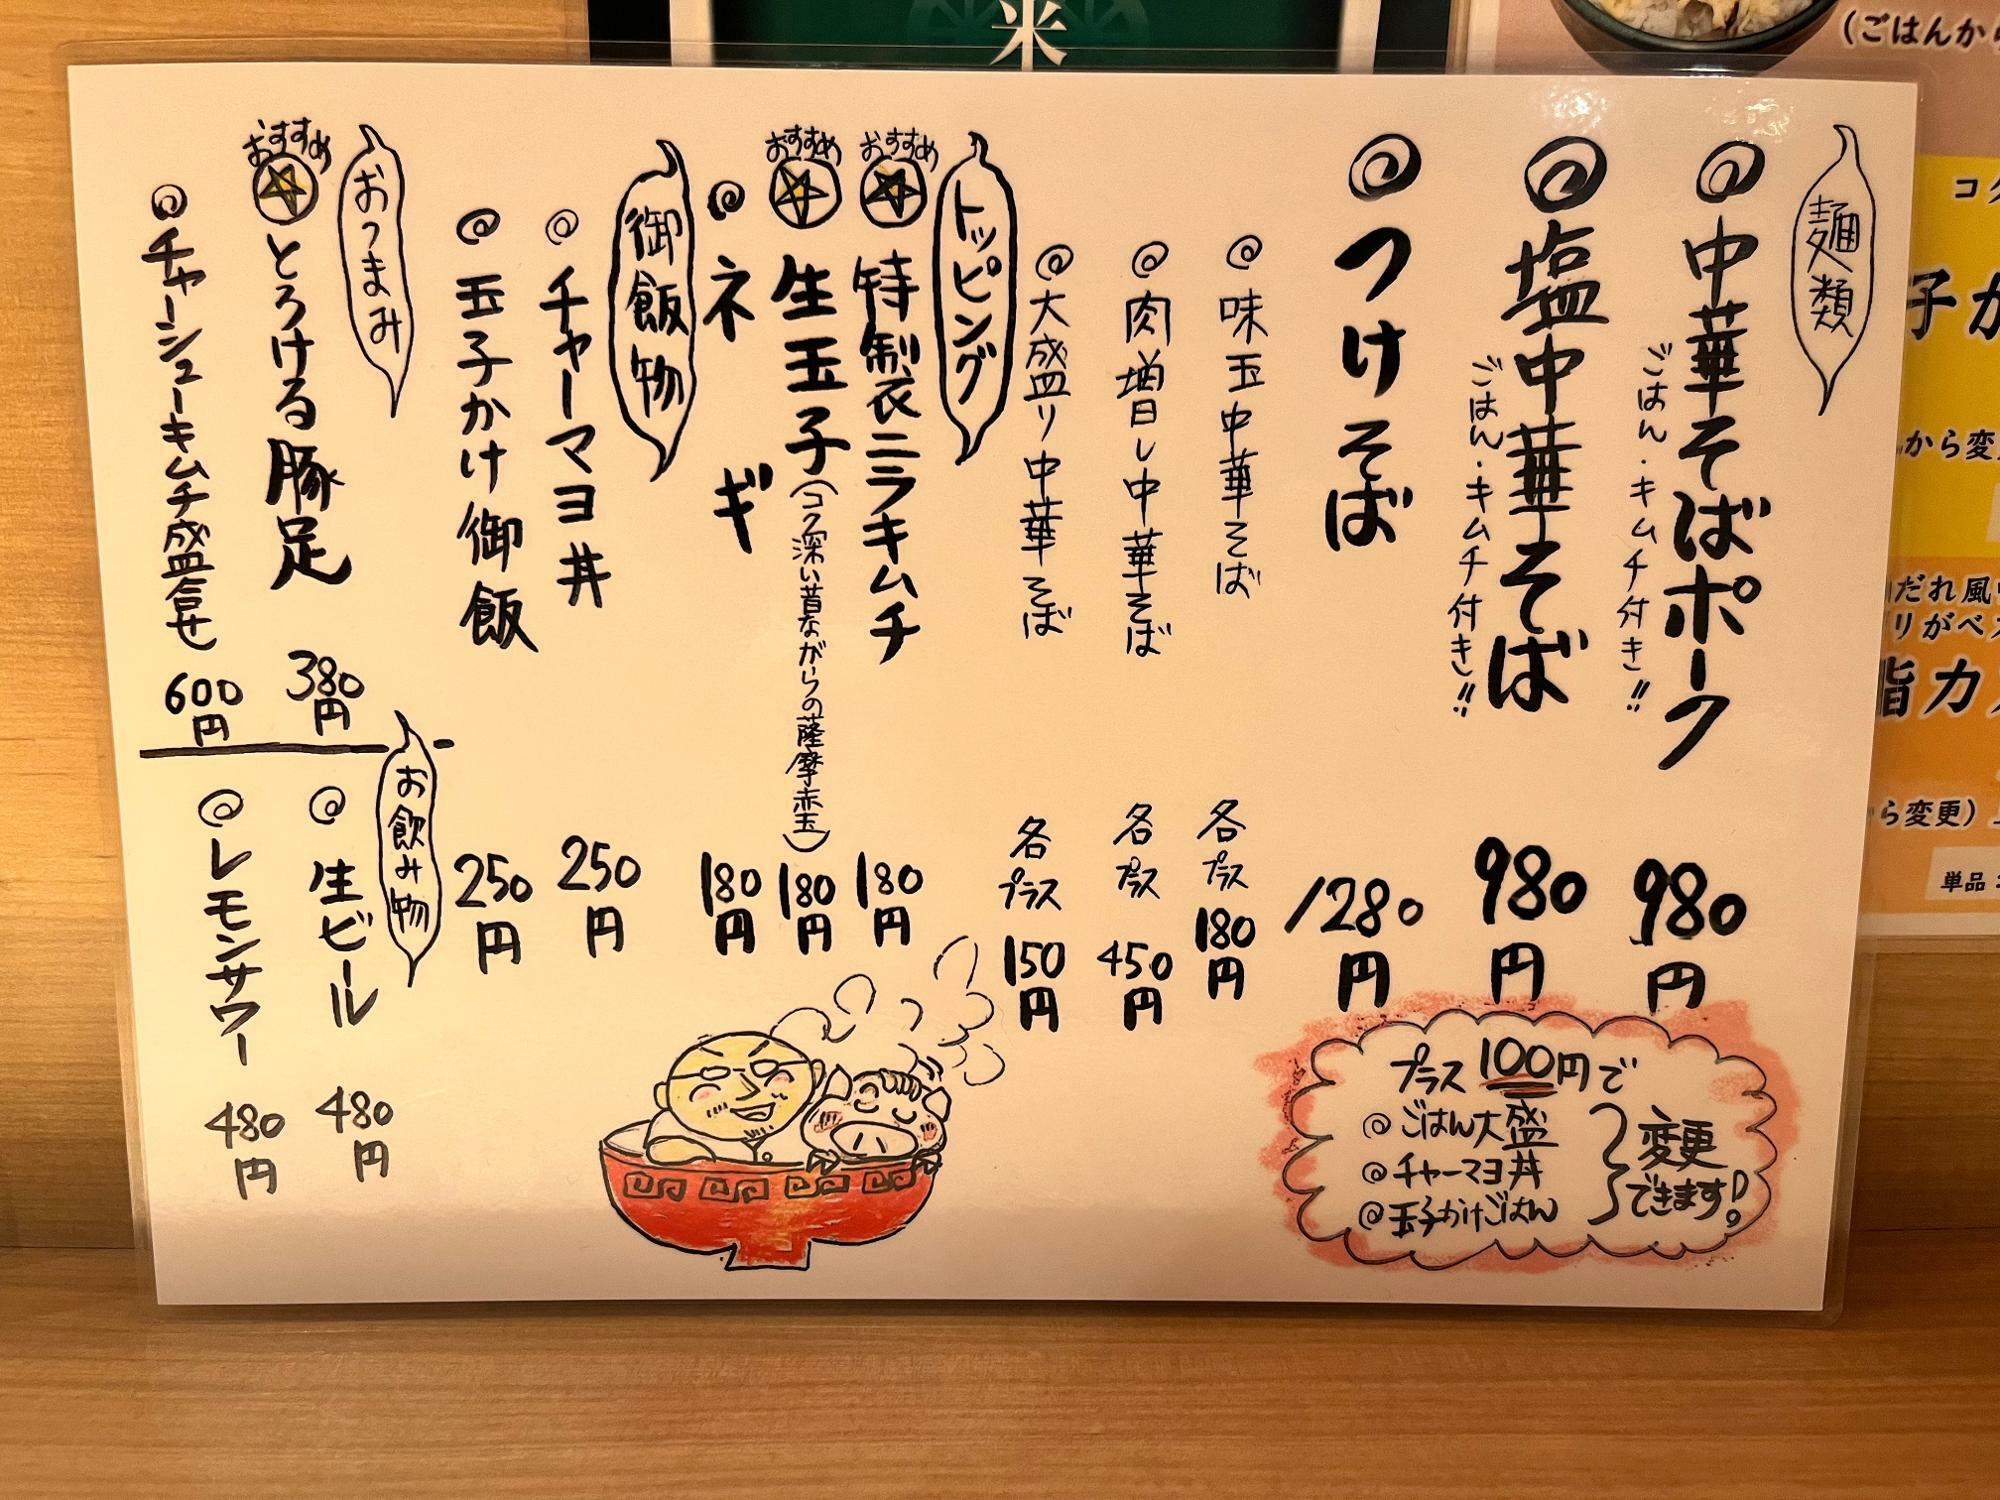 米
(ごはんから
コク
子か
から変
だれ風
リがベス
脂カ
ら変更)
単品
麺類
中華そばポーク
ごはん・キムチ付き!!
980円
塩中華そば
ごはん・キムチ付き!!
980円
つけそば
1280円
味玉中華そば
各プラス180円
肉増し中華そば
各プラス450円
大盛り中華そば
各プラス150円
トッピング
おすすめ
特製ニラキムチ
180円
おすすめ
生玉子(コク深い昔ながらの薩摩赤玉)
180円
ネギ
180円
御飯物
チャーマヨ丼
250円
玉子かけ御飯
250円
おつまみ
おすすめ
とろける豚足
380円
チャーシューキムチ盛合せ
600円
お飲み物
生ビール
480円
レモンサワー
480円
プラス100円で
ごはん大盛
チャーマヨ丼
玉子かけごはん
変更
できます!